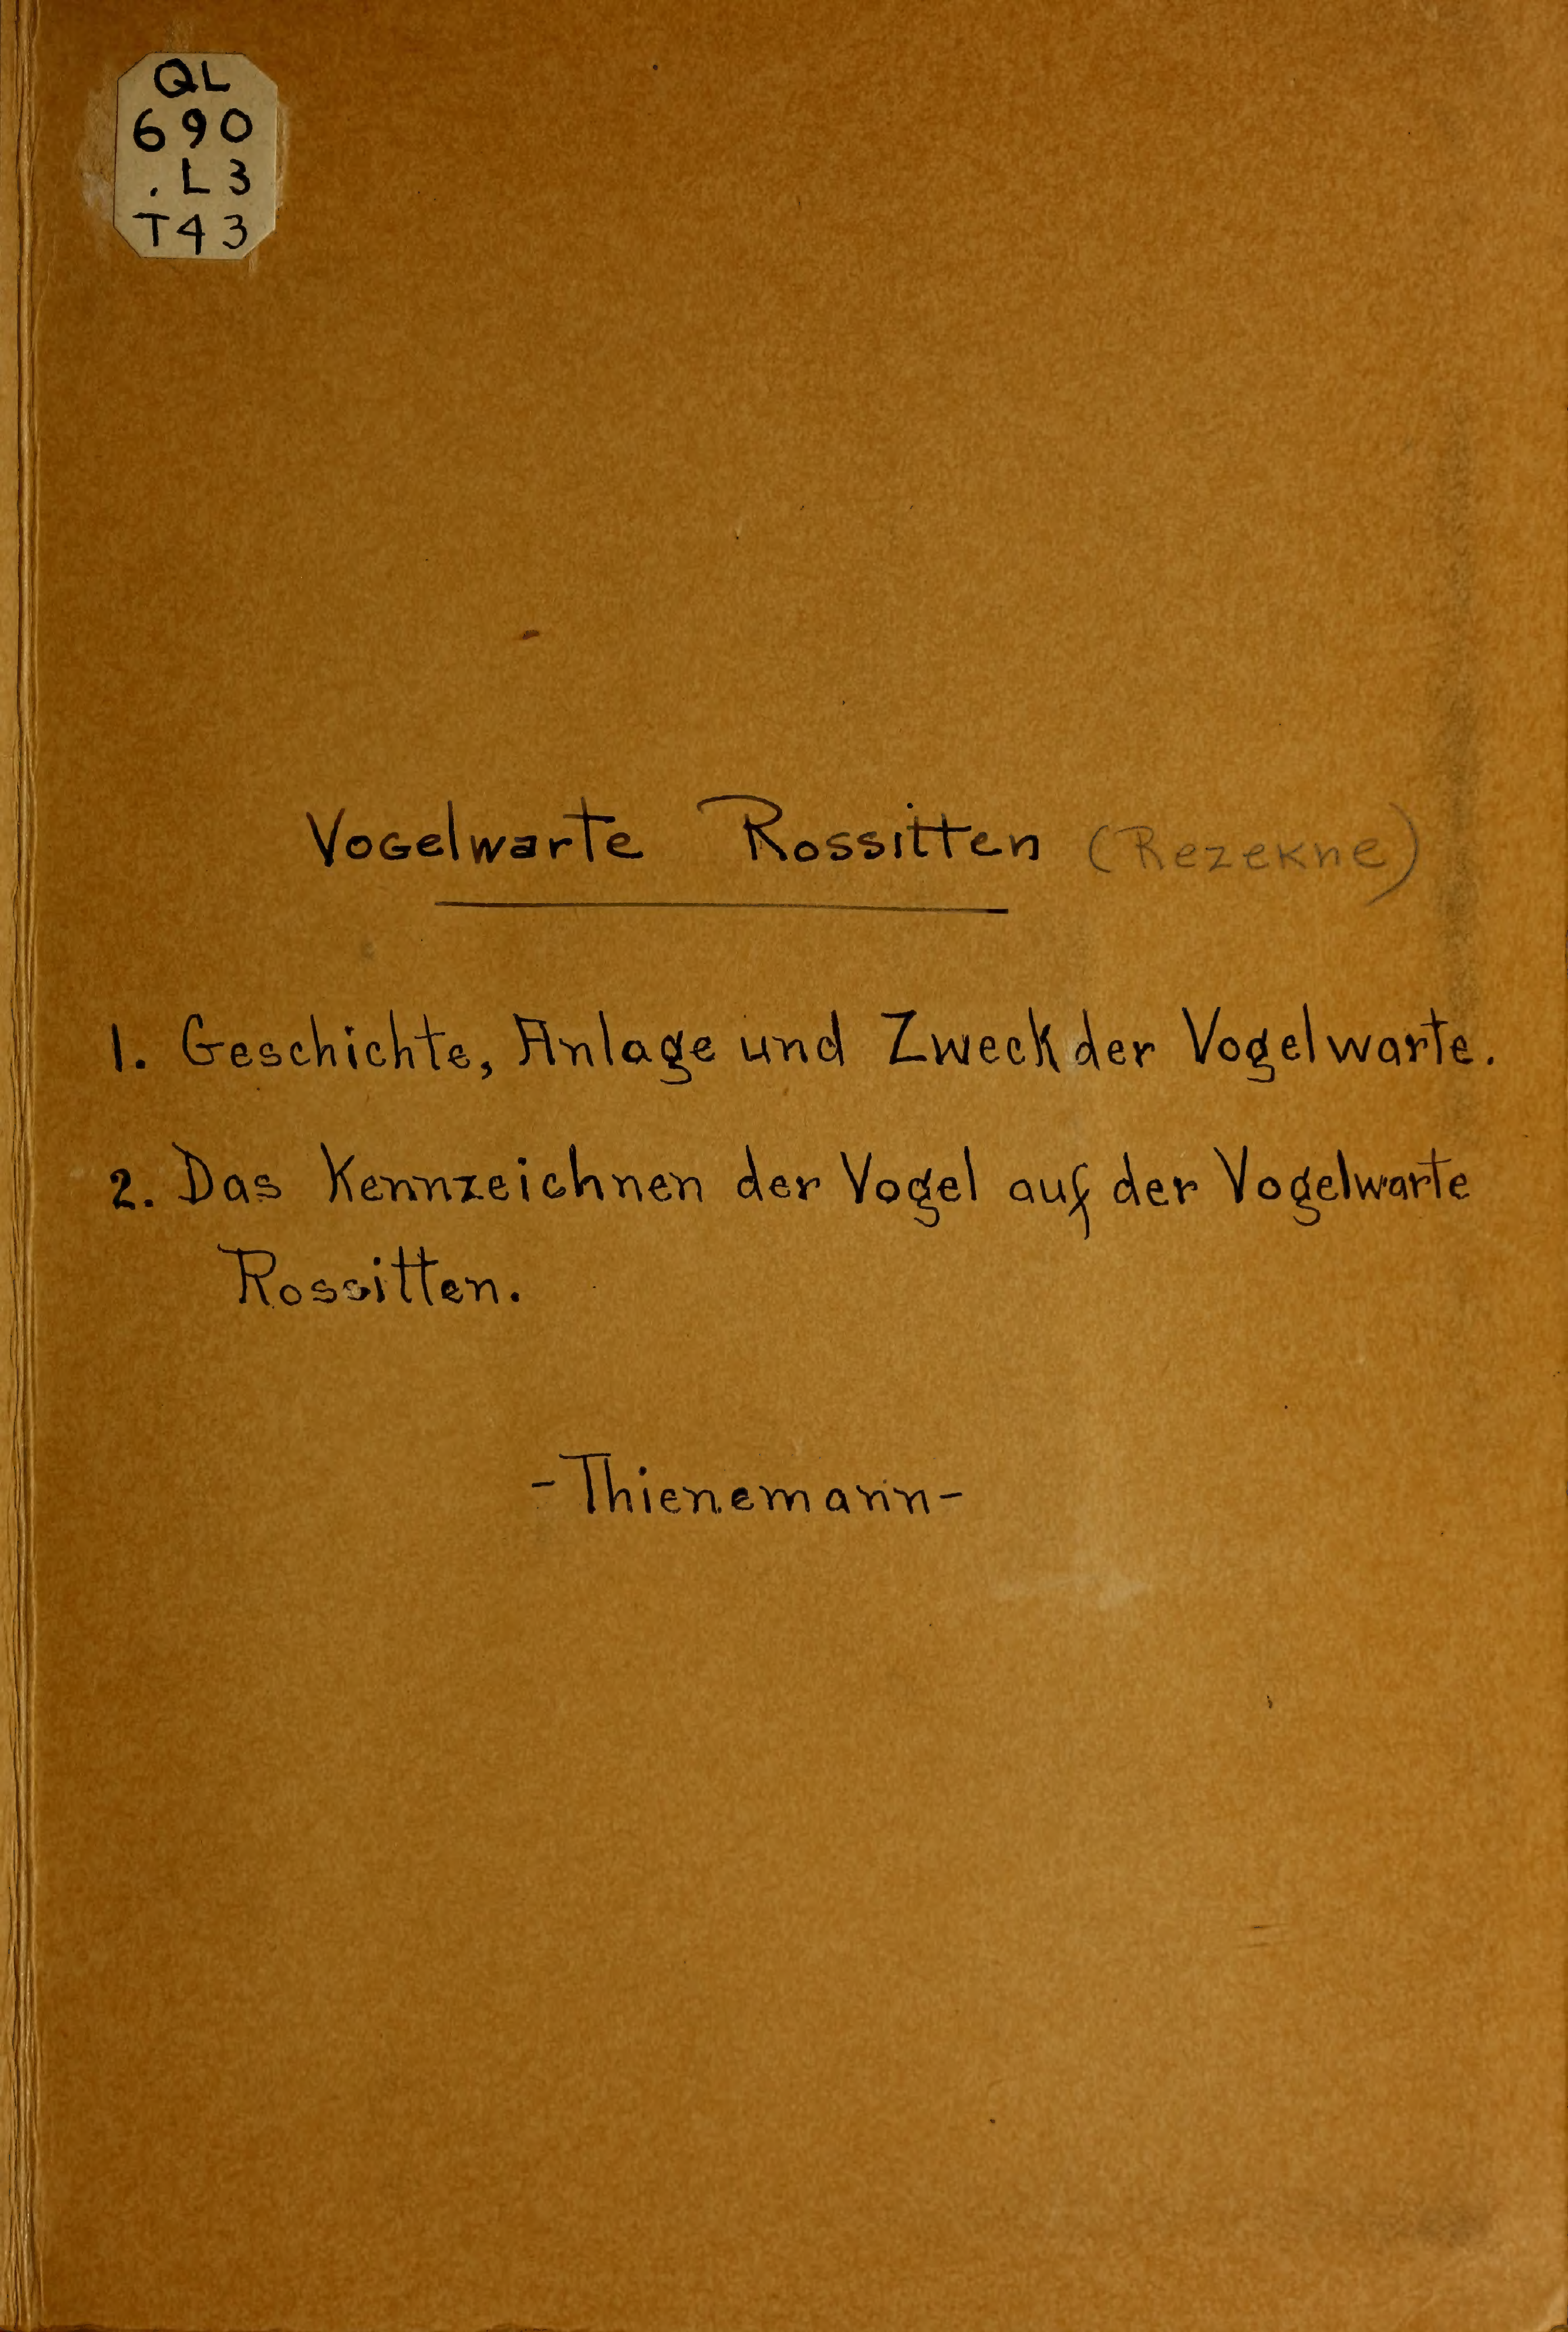 QL
690
.L3
T43
Vogelwarte Rossitten (Rezekne)
1. Geschichte, Anlage und Zweck der Vogelwarte.
2. Das Kennzeichnen der Vogel auf der Vogelwarte
Rossitten.
-Thienemann-